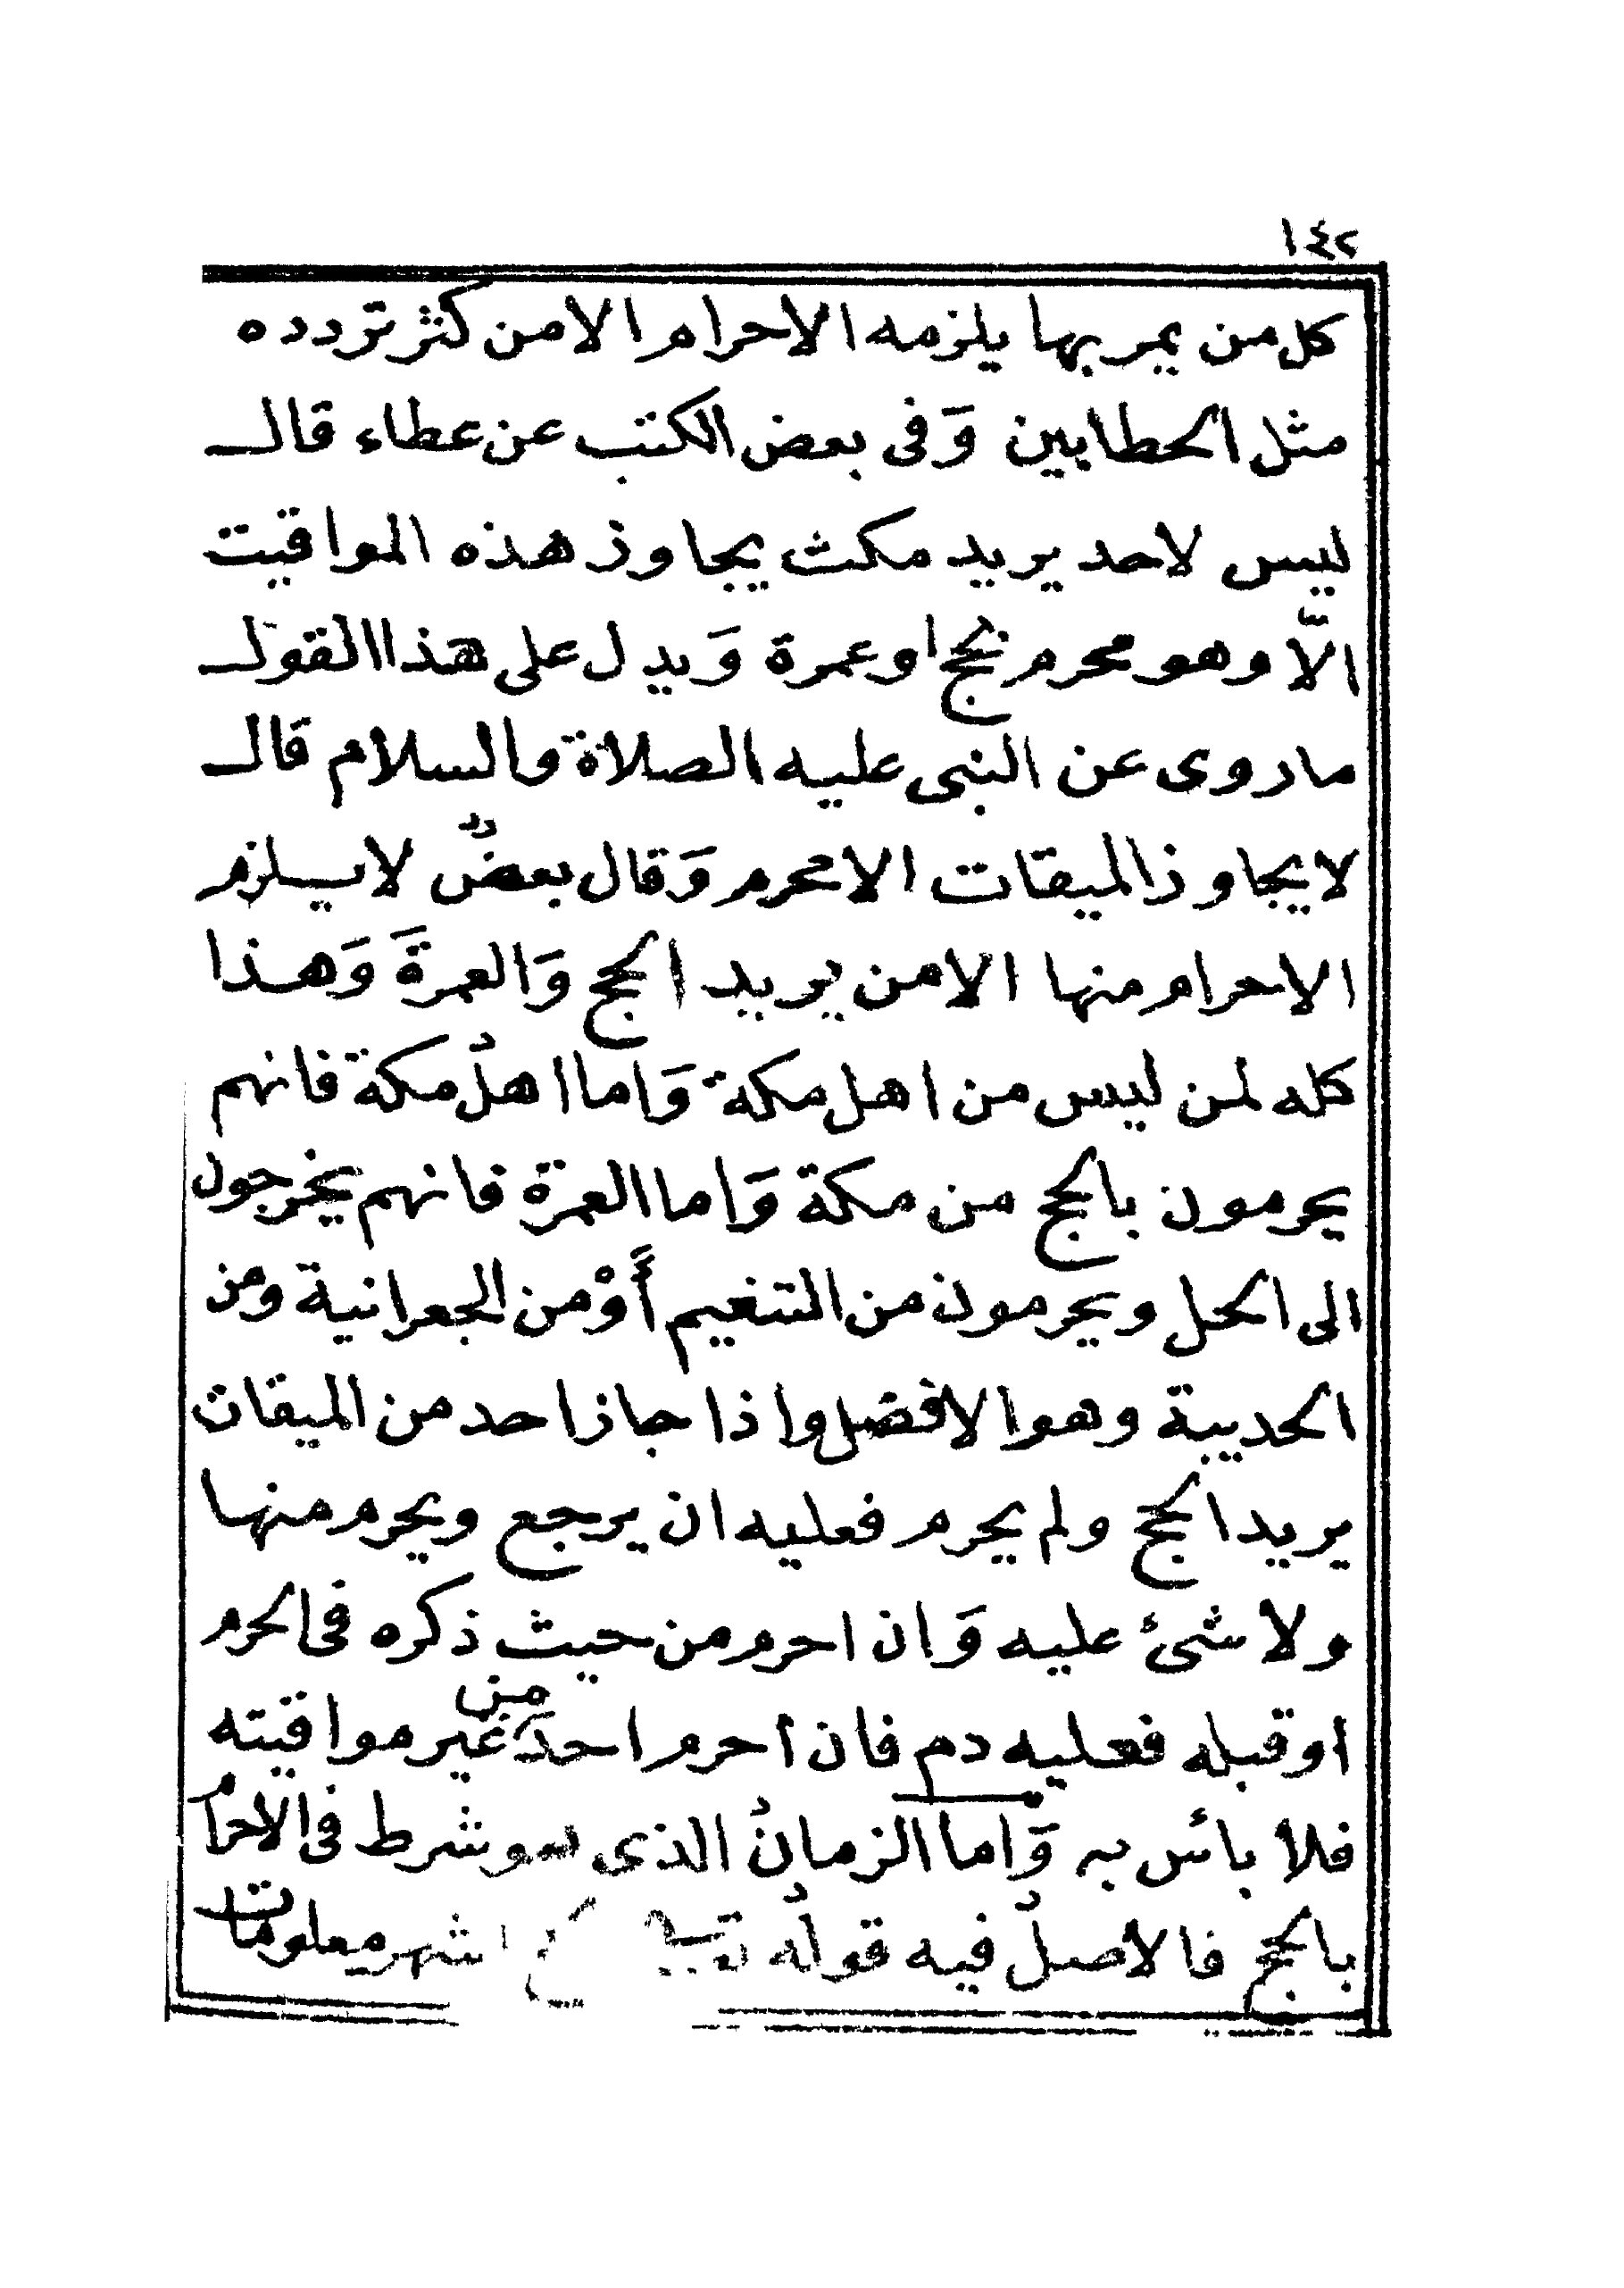 ١٤٢
كل من يمر بها يلزمه الاحرام الا من كثر تردده
مثل الحطابين وَفى بعض الكتب عن عطاء قال
ليس لاحد يريد مكث يجاوز هذه المواقيت
الاّ وهو محرم بحج او عمرة وَيدل على هذا القول
ما روى عن النبى عليه الصلاة والسلام قال
لا يجاوز الميقات الا محرم وَقال بعضٌ لا يلزم
الاحرام منها الا من يريد الحج وَالعمرةَ وَهذا
كله لمن ليس من اهل مكة وَاما اهلُ مكة فانهم
يحرمون بالحج من مكة وَاما العمرة فانهم يخرجون
الى الحل ويحرمون من التنعيم أَوْ من الجعرانية ومن
الحديبة وهو الافضل واذا جاز احد من الميقات
يريد الحج ولم يحرم فعليه ان يرجع ويحرم منها
ولا شئ عليه وَان احرم من حيث ذكره فى الحرم
او قبله فعليه دم فان احرم احد من غير مواقيته
فلا بائس به وَاما الزمانُ الذى هو شرط فى الاحرام
بالحج فالاصلُ فيه قولُه اشهر معلومات